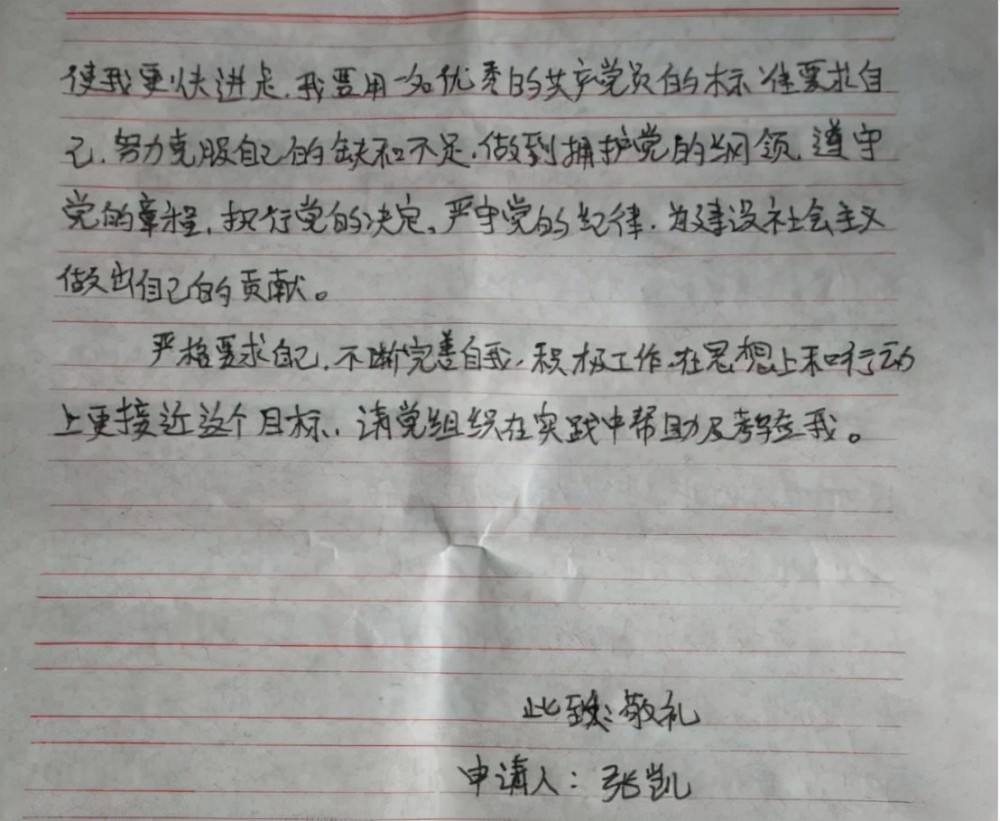 使我更快进步.我要用一名优秀的共产党员的标准要求自
己.努力克服自己的缺和不足.做到拥护党的纲领.遵守
党的章程,执行党的决定。严守党的纪律.为建设社会主义
做出自己的贡献。
严格要求自己.不断完善自我.积极工作.在思想上和行动
上更接近这个目标.请党组织在实践中帮助及考验我。
此致:敬礼
申请人:张凯